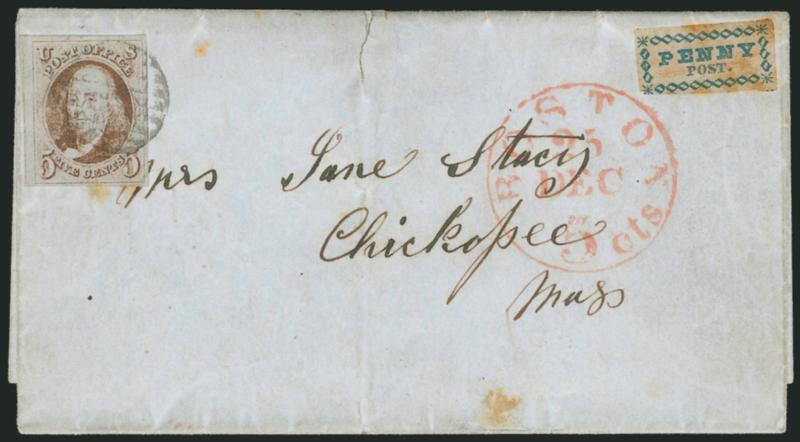 U S
POST OFFICE
FIVE CENTS
PENNY
POST.
BOSTON
25
DEC
5 cts
Mrs Jane Stacy
Chickopee
Mass